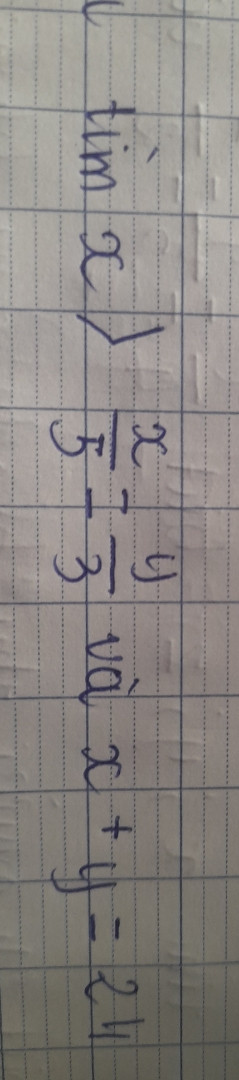 tìm x > x/5 = y/3 và x + y = 24